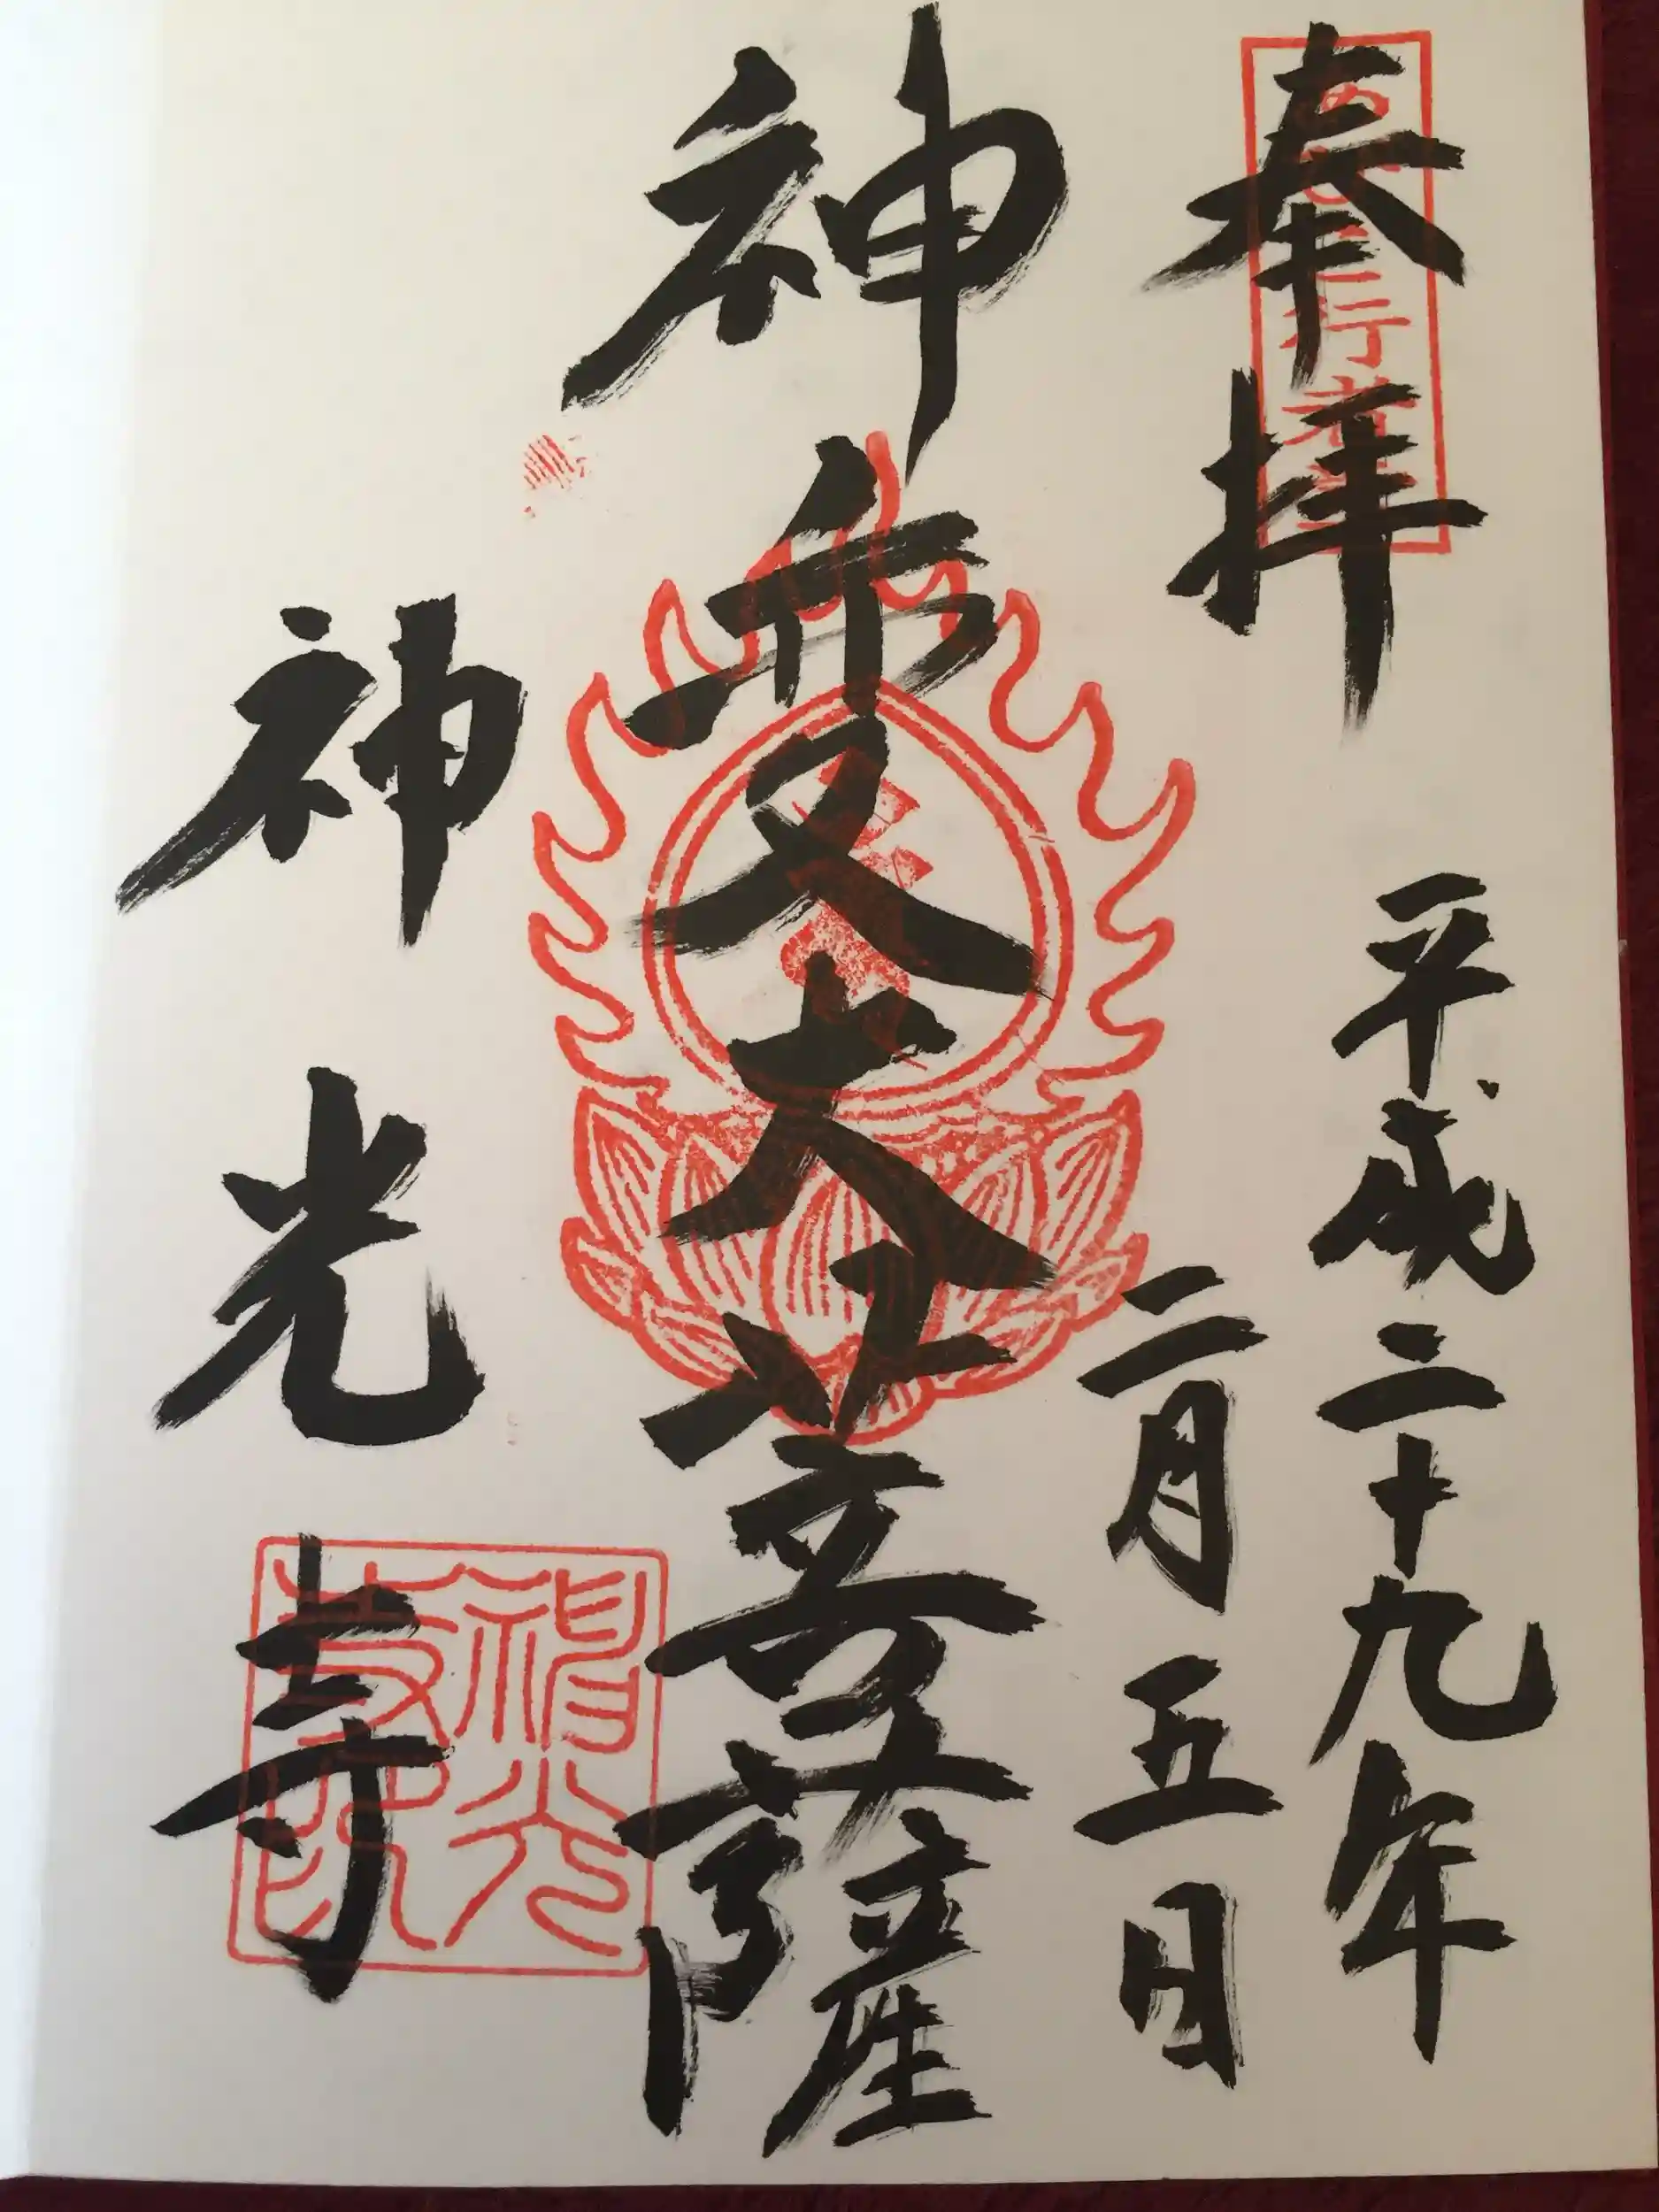 奉拝
平成二十九年
二月五日
神変大菩薩
神光寺
神光寺印